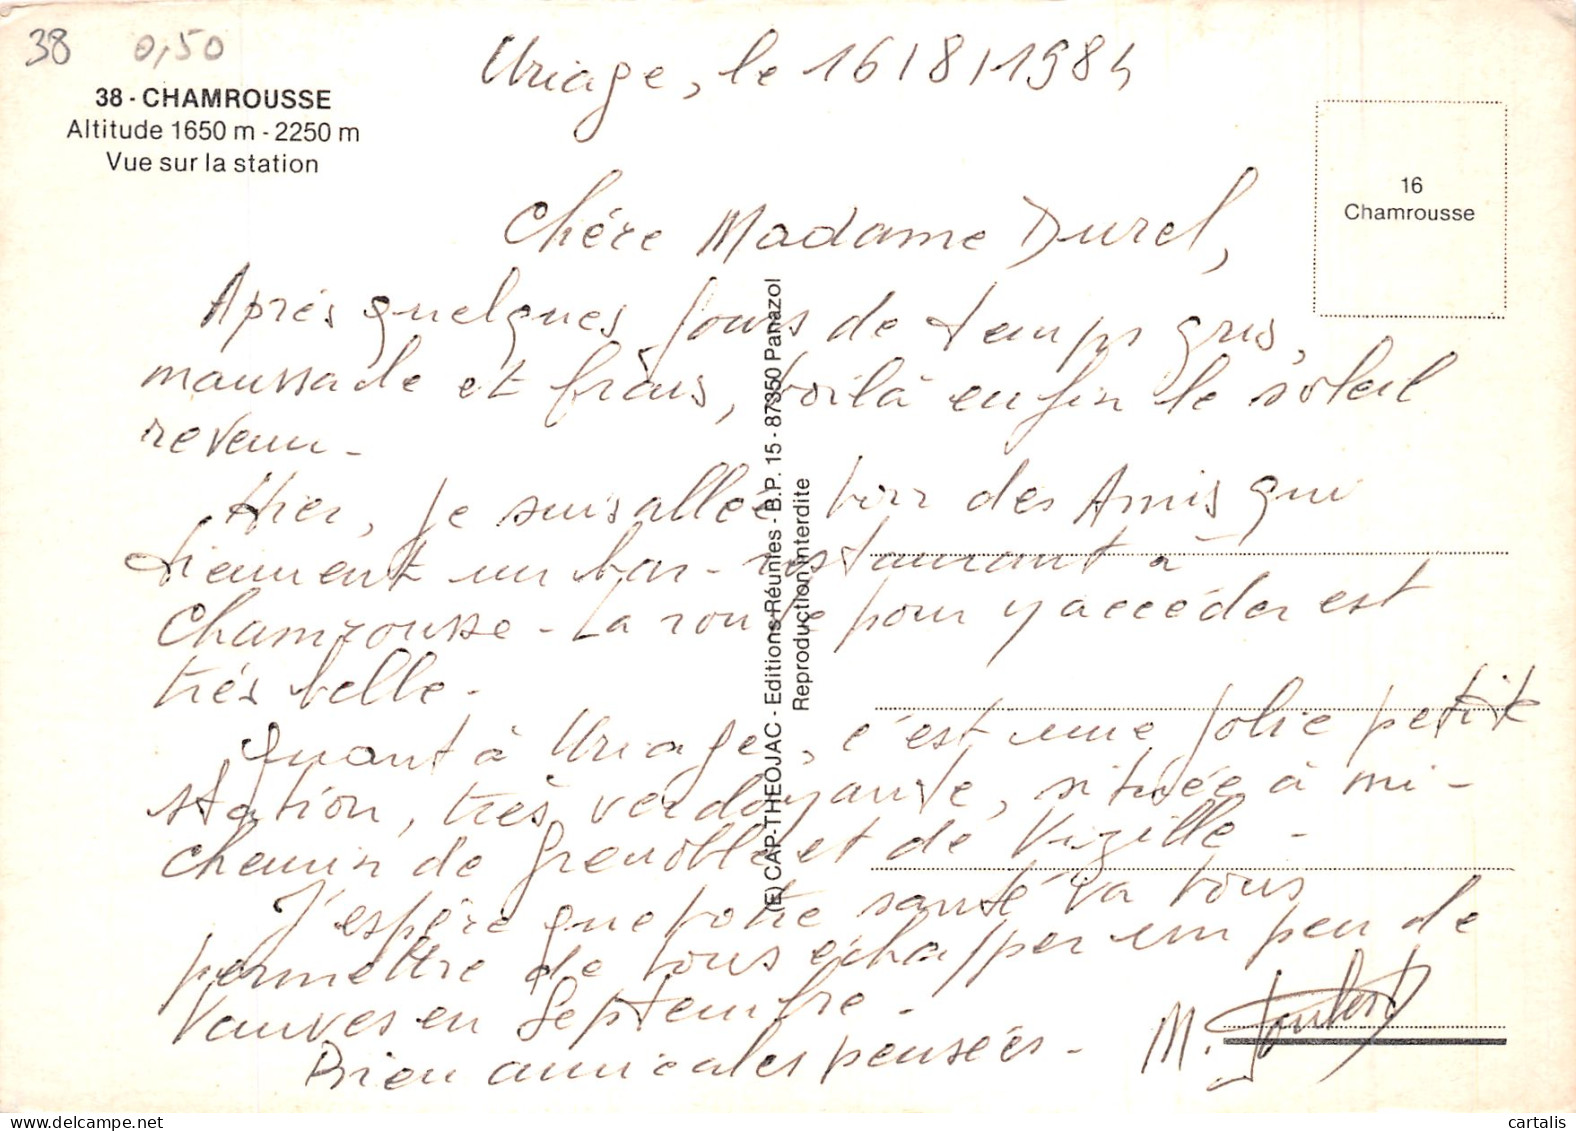 38 0,50
38 - CHAMROUSSE
Altitude 1650 m - 2250 m
Vue sur la station
Uriage, le 16/8/1984
16
Chamrousse
Chére Madame Durel,
Aprés quelques jours de temps gris,
maussade et frais, voilà enfin le soleil
revenu -
Hier, je suis allée voir des Amis qui
tiennent un bar-restaurant à
Chamrousse - La route pour y accéder est
trés belle -
Quant à Uriage, c'est une jolie petite
station, très verdoyante, située à mi-
chemin de Grenoble et de Vizille -
J'espère que votre santé va vous
permettre de vous échapper un peu de
Vanves en Septembre -
Bien amicales pensées - M.
(E) CAP-THEOJAC - Editions Réunies - B.P. 15 - 87350 Panazol
Reproduction interdite
cartalis